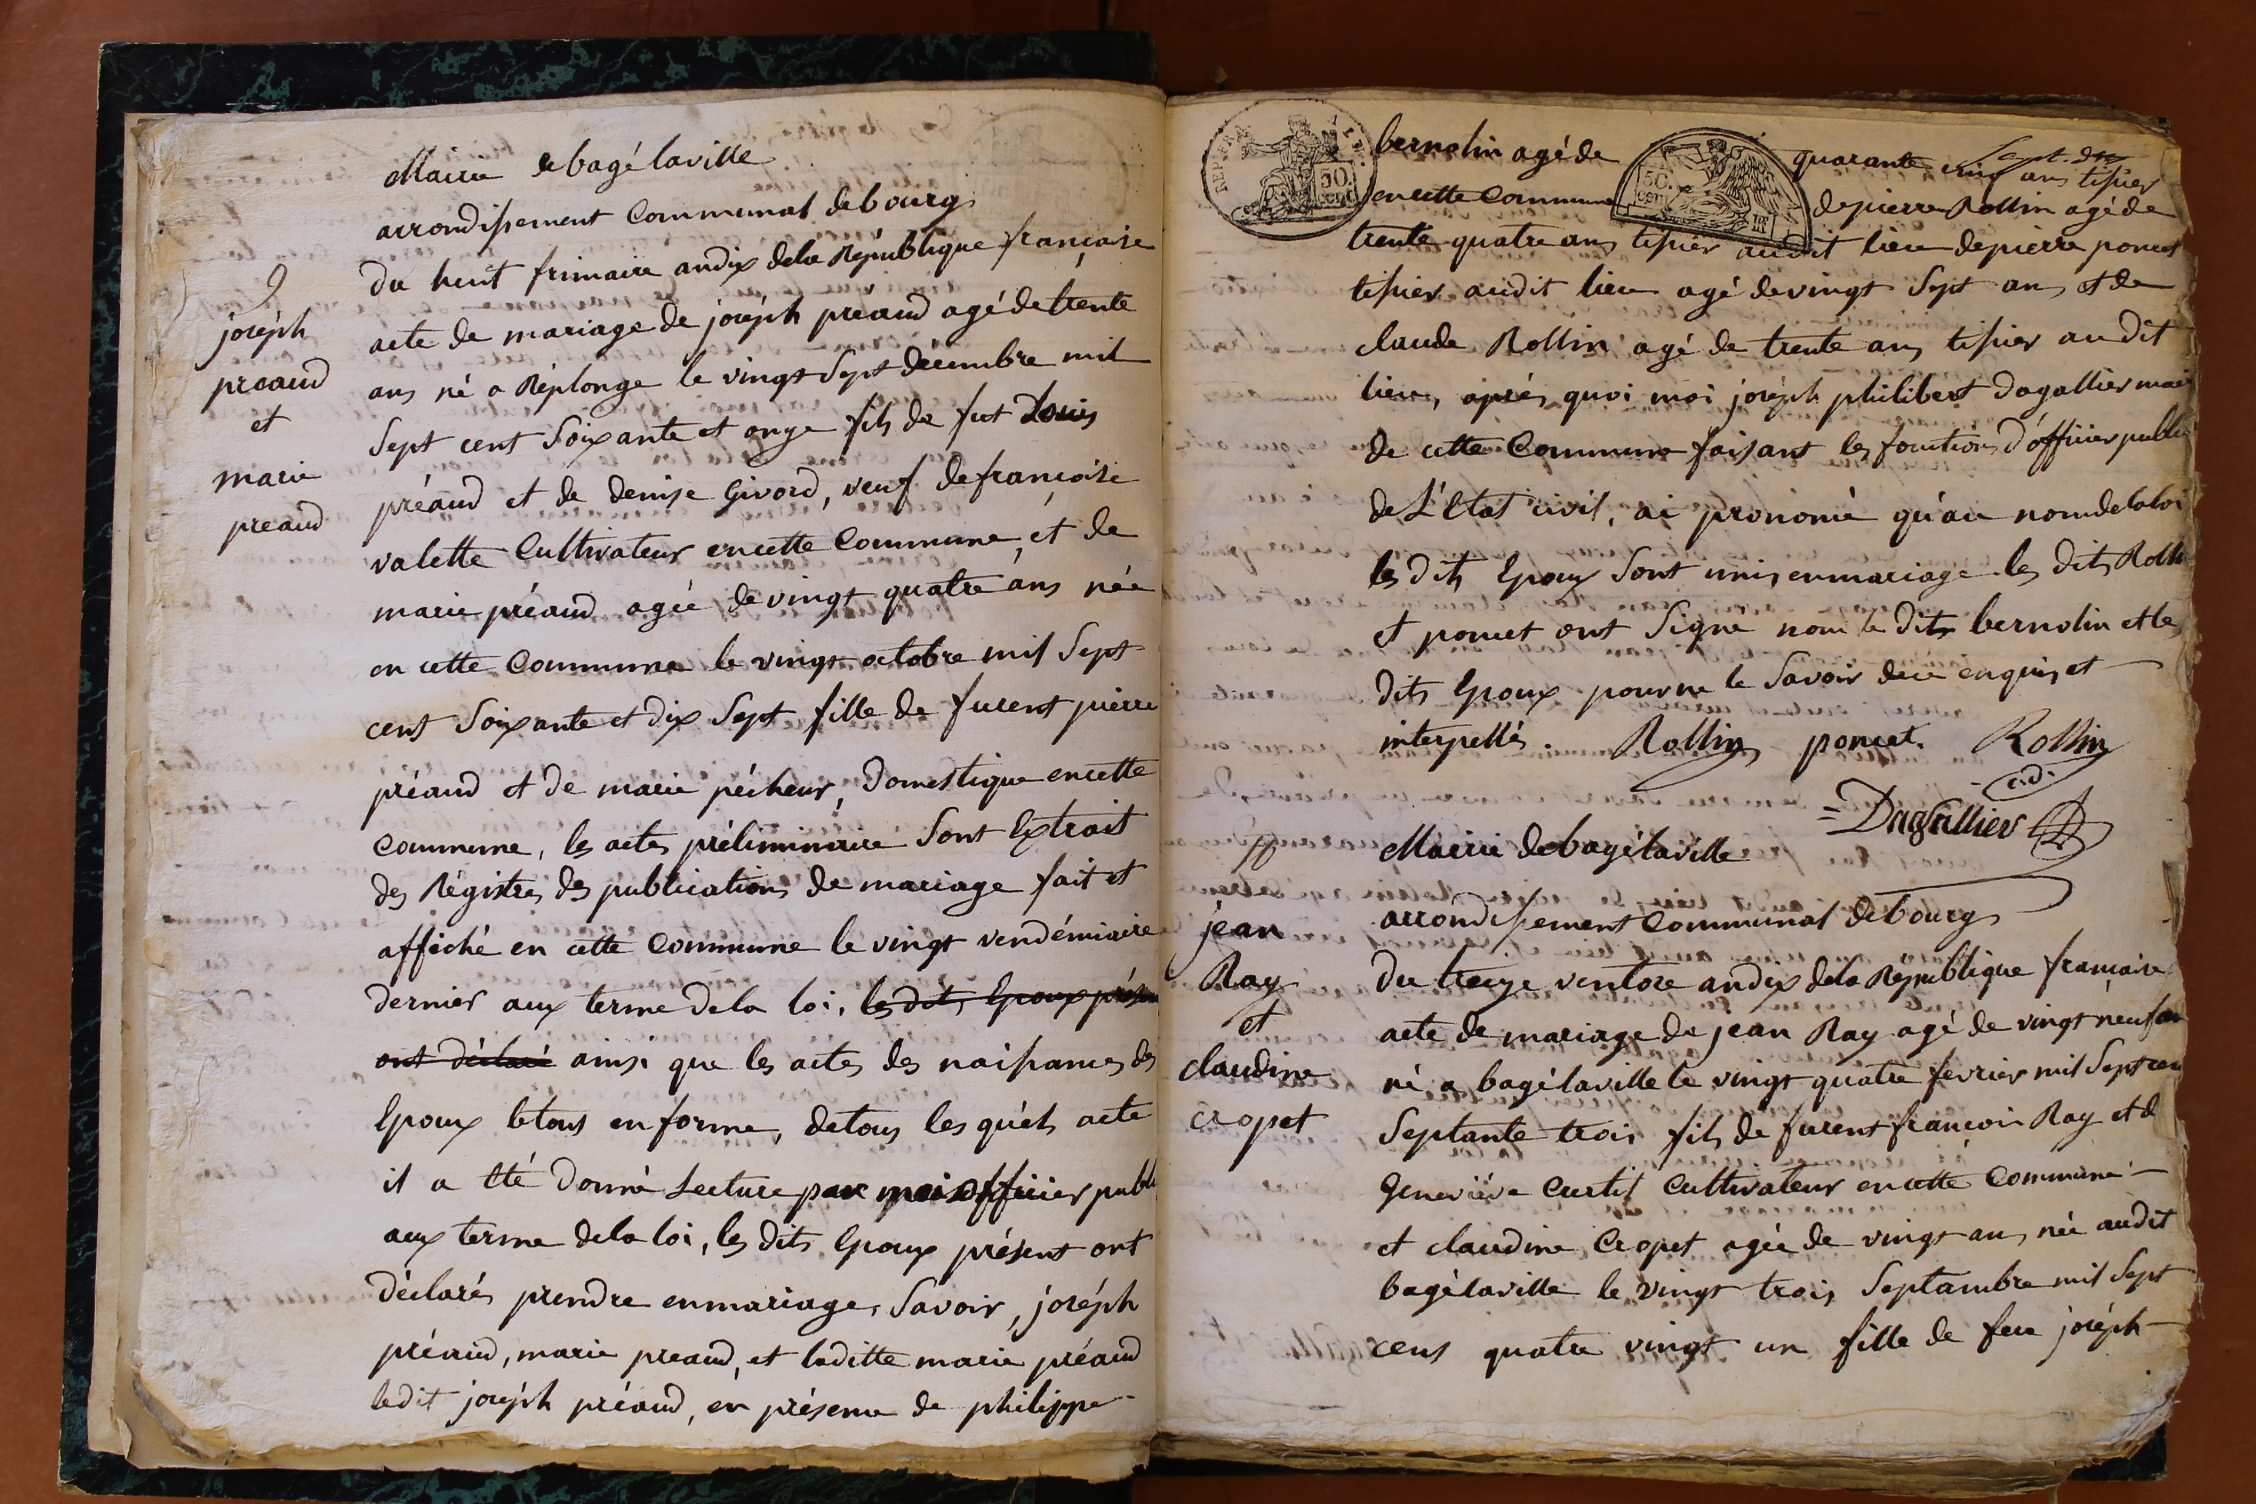 Mairie de bagé laville
arrondissement Communal de bourg
du huit frimaire an dix de la République françaire
9
joséph
preaud
et
marie
preaud
acte de mariage de joséph préaud agé de trente
ans né a Réplonge le vingt Sept décembre mil
Sept cent Soixante et onze fils de fut Louis
préaud et de denise Givord, veuf de françoise
valette Cultivateur en cette Commune, et de
marie préaud agée de vingt quatre ans née
en cette Commune le vingt octobre mil Sept
cent Soixante et dix Sept fille de furent pierre
préaud et de marie pécheur, domestique en cette
Commune, les actes préliminaire Sont Extrait
des Régistres des publications de mariage fait et
affiché en cette Commune le vingt vendémiaire
dernier aux terme de la loi, les dits Epoux présen
ont déclaré ainsi que les actes des naissances des
Epoux le tout en forme, de tous les quéls acte
il a Eté donné Lecture par moi officier publi
aux terme de la loi, les dits Epoux présent ont
déclarés prendre en mariage, Savoir, joséph
préaud, marie preaud, et laditte marie préaud
ledit joséph préaud, en présence de philippe
REP. FRA.
50. cent.
bernolin agé de quarante cinq ans tissier
Sept. dix
50. cen.
en cette Commune de pierre Rollin agé de
trente quatre ans tissier audit lieu de pierre poncet
tissier audit lieu agé de vingt Sept ans et de
claude Rollin agé de trente ans tissier au dit
lieu, aprés quoi moi joséph philibert dagallier mair
de cette Commune faisant les fonctions d'officier public
de L'Etat civil, ai prononcé qu'au nom de la loi
les dits Epoux Sont unis en mariage les dits Rollin
et poncet ont Signé non le dits bernolin et les
dits Epoux pour ne le Savoir de ce enquis et
interpellés. Rollin poncet. Rollin
Dagallier
ff
jean
Ray
et
claudine
cropet
Mairie de bagé laville
arrondissement Communal de bourg
du treize ventose an dix de la République françaire
acte de mariage de jean Ray agé de vingt néuf an
né a bagé laville le vingt quatre février mil Sept cen
Septante trois fils de furent françois Ray et d
Geneviéve Curtil Cultivateur en cette Commune
et claudine Cropet agée de vingt ans née audit
bagé laville le vingt trois Septambre mil Sept
cens quatre vingt un fille de feu joséph